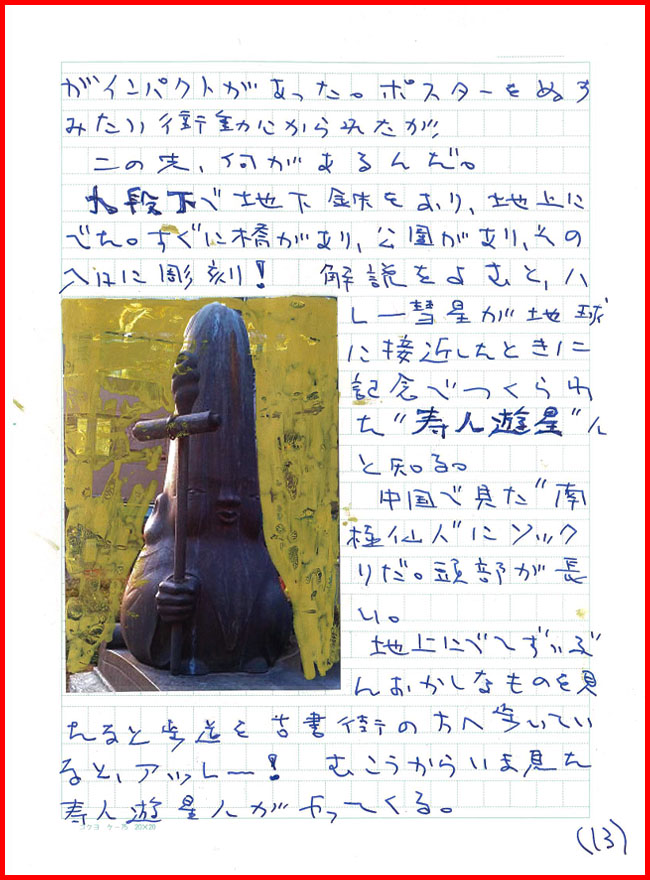 がインパクトがあった。ポスターをぬす
みたい衝動にかられたが!
この先、何があるんだ。
九段下で地下鉄をおり、地上に
でた。すぐに橋があり、公園があり、その
へりに彫刻! 解説をよむと、ハ
レー彗星が地球
に接近したときに
記念でつくられ
た“寿人遊星”人
と知る。
中国で見た“南
極仙人”にソック
リだ。頭部が長
い。
地上にでてずいぶ
んおかしなものを見
たなと歩道を古書街の方へ歩いてい
ると、アッレー! むこうからいま見た
寿人遊星人がやってくる。
コクヨ ケー75 20×20
(13)